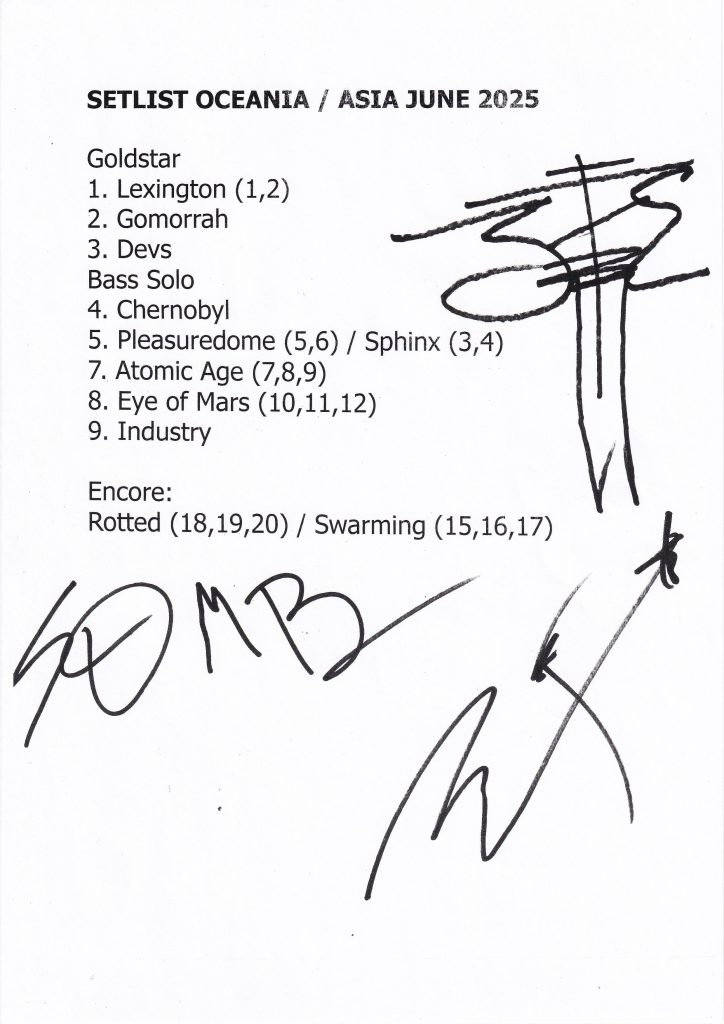 SETLIST OCEANIA / ASIA JUNE 2025
Goldstar
1. Lexington (1,2)
2. Gomorrah
3. Devs
Bass Solo
4. Chernobyl
5. Pleasuredome (5,6) / Sphinx (3,4)
7. Atomic Age (7,8,9)
8. Eye of Mars (10,11,12)
9. Industry
Encore:
Rotted (18,19,20) / Swarming (15,16,17)